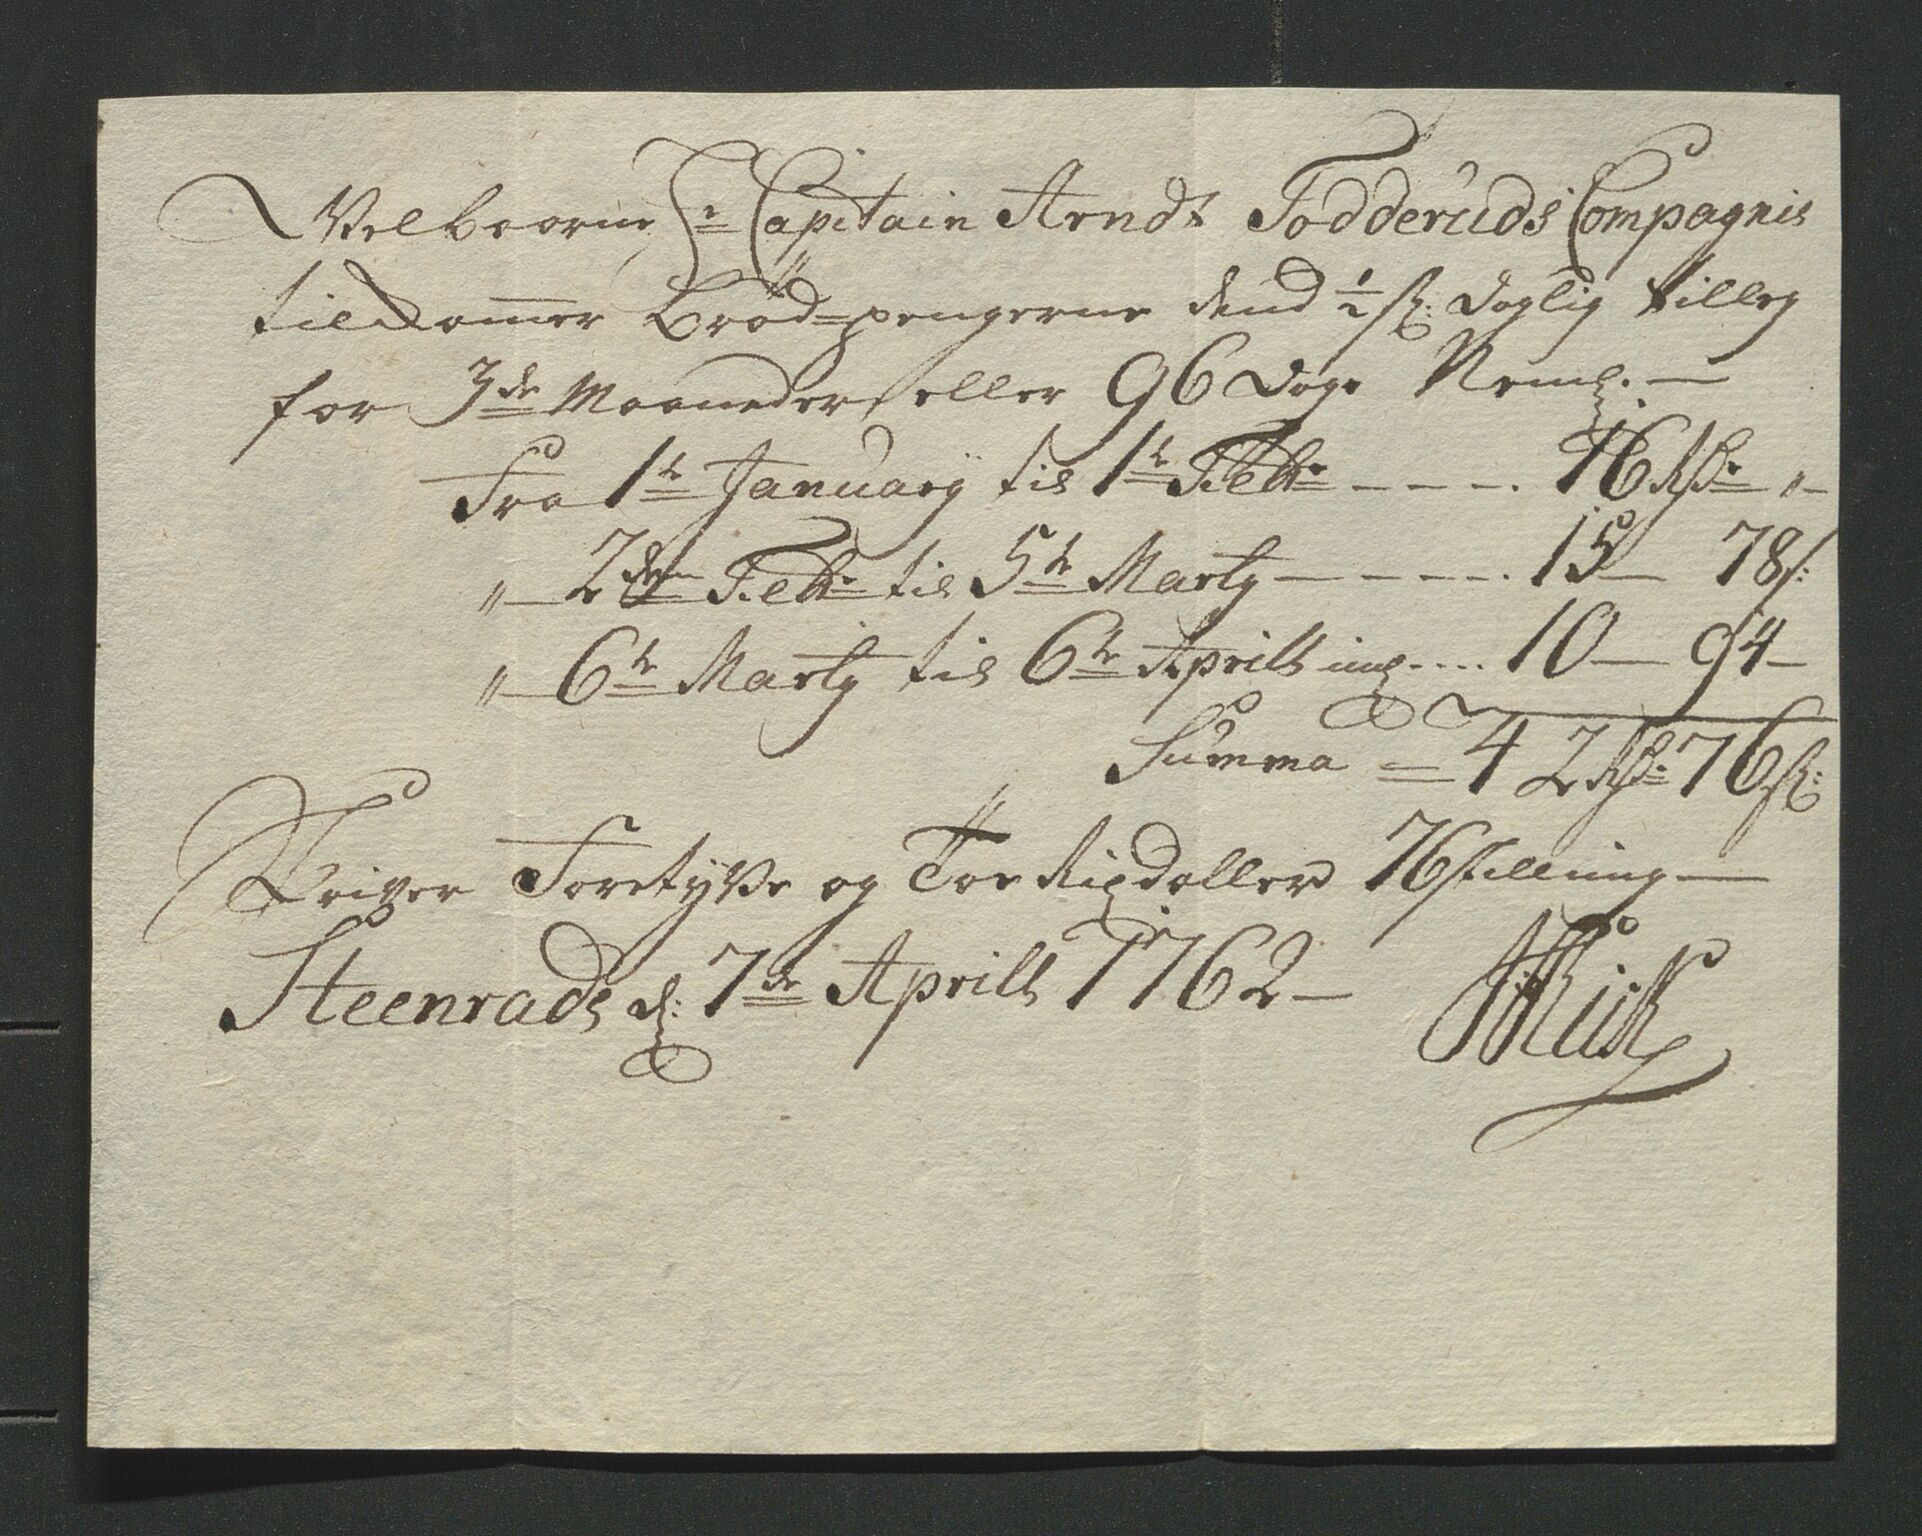 Velbaarne Hr Capitain Arndt Todderuds Compagnie
tilkommer Brød=pengerne dend ½ s: daglig tilleg
for 3de Maaneder, eller 96 Dage Neml. —
Fra 1te January til 1te Febr - - - - 16 Rdr „ -
„ — 2den Febr til 5te Marty - - - - - 15 — 78 s:
„ — 6te Marty til 6te Aprill incl .... 10 — 94 —
Summa = 42 Rdr 76 s:
Skriver Foretyve og Toe Rigsdaller 76 skilling —
Steenrads d: 7de Aprill 1762 —